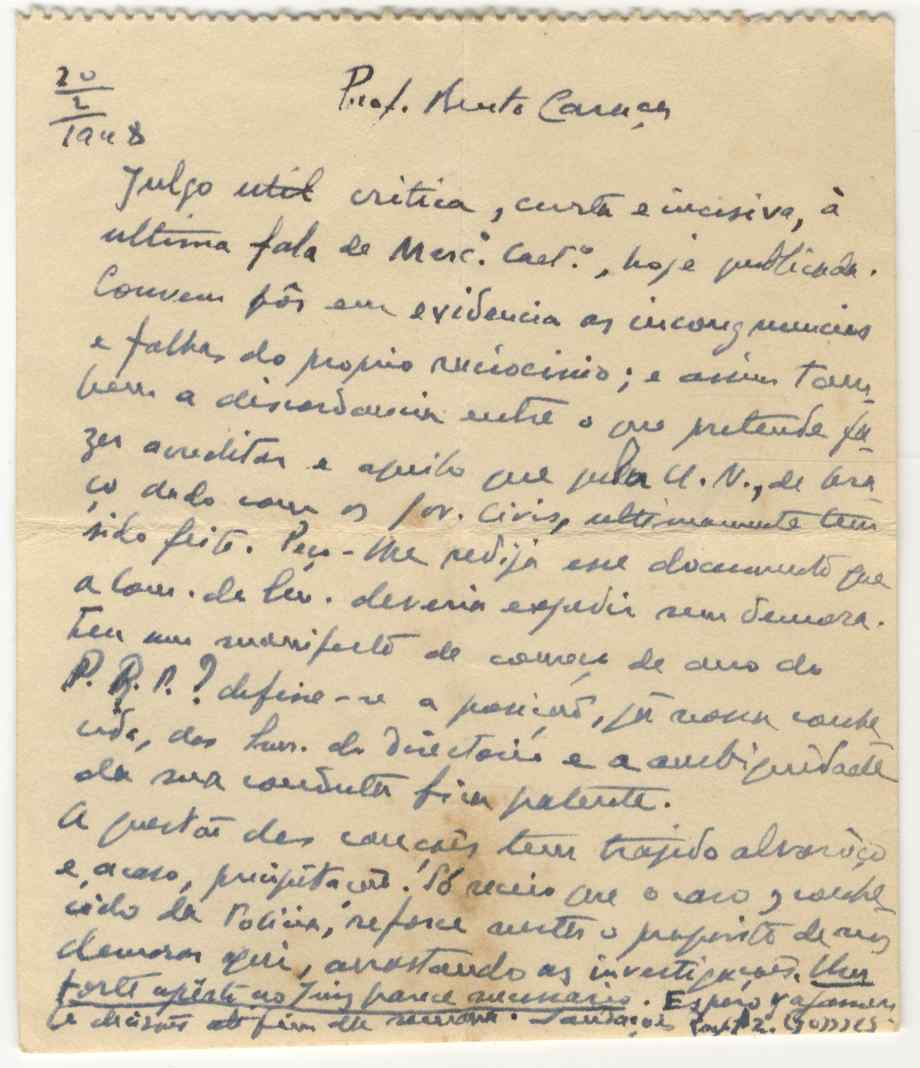 20
2
1948
Prof. Bento Caraça
Julgo util critica, curta e incisiva, à
ultima fala de Marc.º Caet.º, hoje publicada.
Convem pôr em evidencia as incongruencias
e falhas do proprio raciocinio; e assim tam-
bem a discordancia entre o que pretende fa-
zer acreditar e aquilo que pela U. N., de bra-
ço dado com os Gov. Civis, ultimamente tem
sido feito. Peço-lhe redija esse documento que
a Com. de deveria expedir sem demora.
Leu um manifesto de começo de ano do
P. R. P.? define-se a posição, já nossa conhe
cida, dos hom. do Directorio e a ambiguidade
da sua conduta fica patente.
A questão das cauções tem trazido alvoroço
e, acaso, precipitação! Só receio que o caso, conhe-
cido da Policia, reforce nesta o proposito de nos
demorar aqui, arrastando as investigações. Um
forte apêrto ao Juiz parece necessario. Espero vagamen
te decisões até fim da semana. Saudações